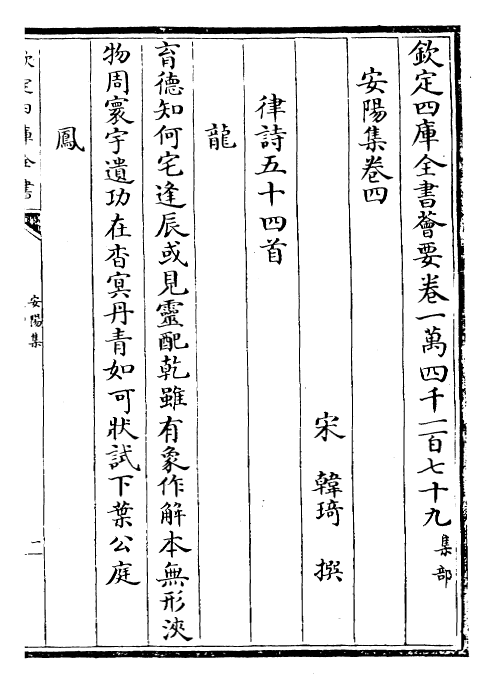 欽定四庫全書薈要卷一萬四千二百七十九集部
安陽集卷四
宋 韓琦 撰
律詩五十四首
龍
育德知何宅逢辰或見靈配乾雖有象作解本無形浹
物周寰宇遺功在杳冥丹青如可狀試下葉公庭
鳳
欽定四庫全書
安陽集